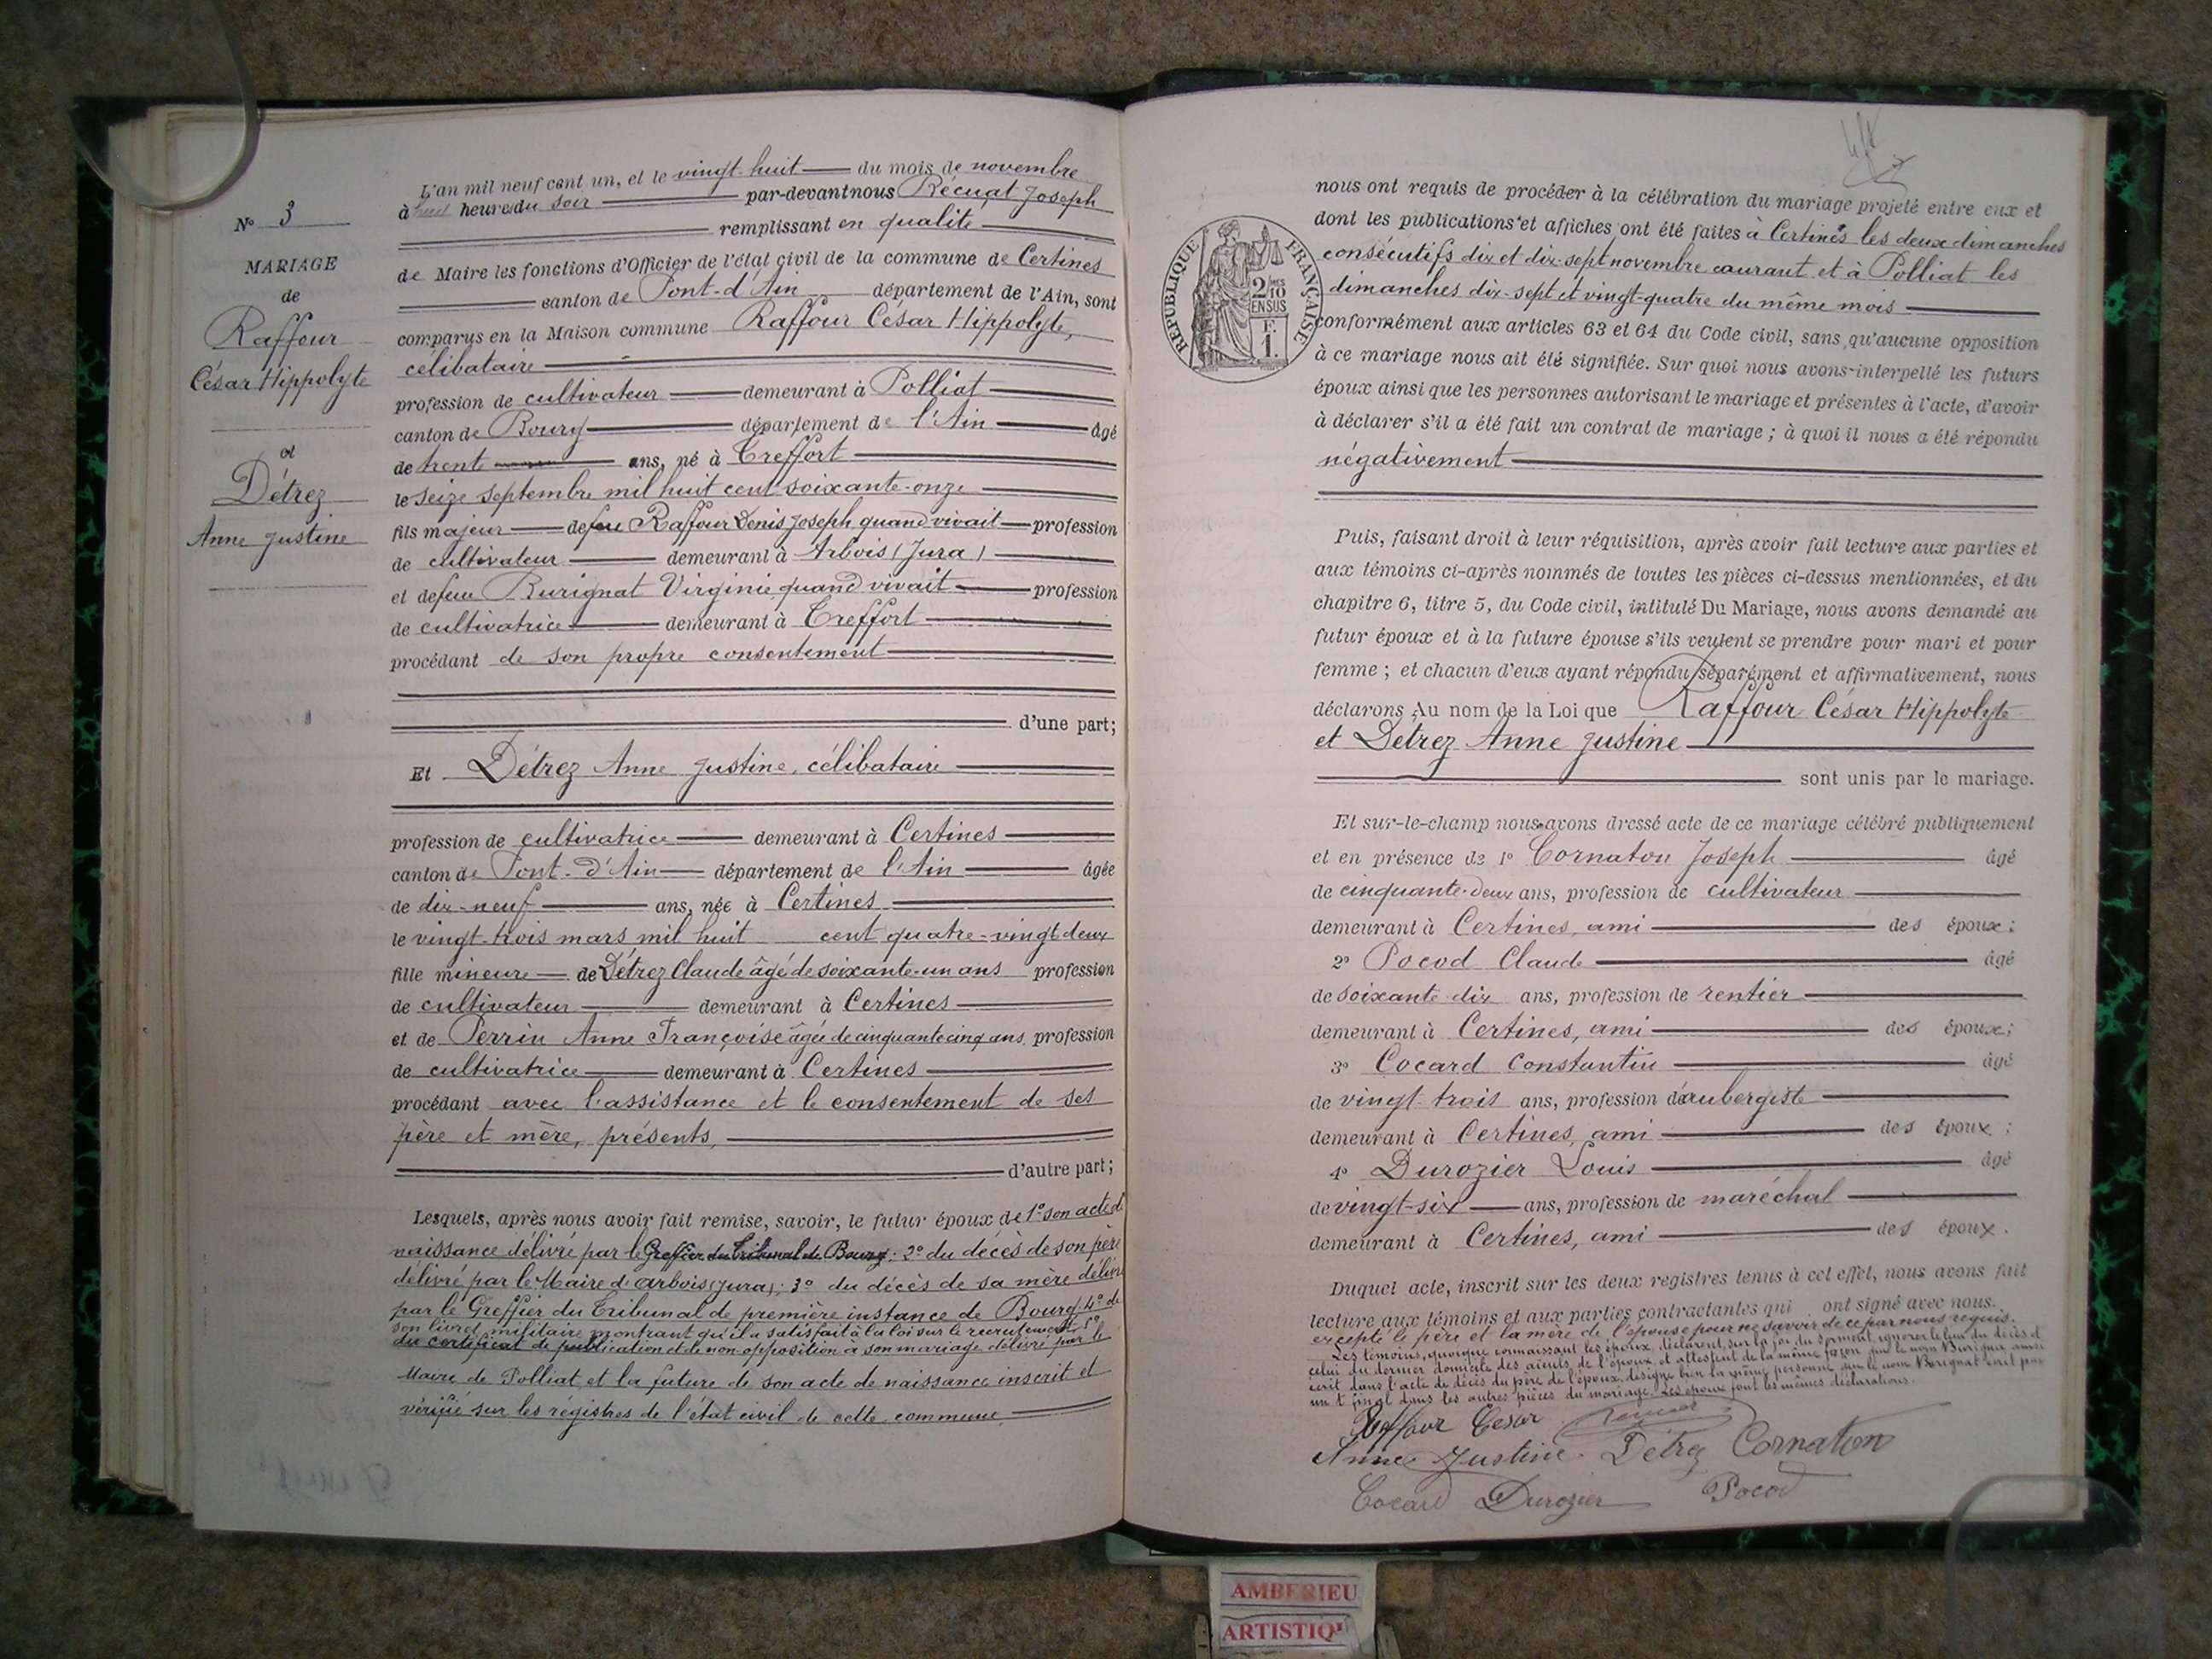 N° 3
MARIAGE
de
Raffour
César Hippolyte
et
Détrez
Anne Justine
L'an mil neuf cent un, et le vingt-huit du mois de novembre
à huit heures du soir par-devant nous Récuat Joseph
remplissant en qualité
de Maire les fonctions d'Officier de l'état civil de la commune de Certines
canton de Pont-d'Ain département de l'Ain, sont
comparus en la Maison commune Raffour César Hippolyte,
célibataire
profession de cultivateur demeurant à Polliat
canton de Bourg département de l'Ain âgé
de trente ans, né à Treffort
le seize septembre mil huit cent soixante-onze
fils majeur de feu Raffour Denis Joseph quand vivait profession
de cultivateur demeurant à Arbois (Jura)
et de feue Burignat Virginie quand vivait profession
de cultivatrice demeurant à Treffort
procédant de son propre consentement
d'une part;
Et Détrez Anne Justine, célibataire
profession de cultivatrice demeurant à Certines
canton de Pont-d'Ain département de l'Ain âgée
de dix-neuf ans, née à Certines
le vingt-trois mars mil huit cent quatre-vingt deux
fille mineure de Détrez Claude âgé de soixante-un ans profession
de cultivateur demeurant à Certines
et de Perrin Anne Françoise âgée de cinquante cinq ans profession
de cultivatrice demeurant à Certines
procédant avec l'assistance et le consentement de ses
père et mère, présents,
d'autre part;
Lesquels, après nous avoir fait remise, savoir, le futur époux de 1° son acte d
naissance délivré par le Greffier du Tribunal de Bourg; 2° du décès de son père
délivré par le Maire d'Arbois (Jura); 3° du décès de sa mère délivré
par le Greffier du Tribunal de première instance de Bourg; 4° de
son livret militaire montrant qu'il a satisfait à la loi sur le recrutement 5°
du certificat de publication et de non-opposition à son mariage délivré par le
Maire de Polliat, et la future de son acte de naissance inscrit et
vérifié sur les régistres de l'état civil de cette commune
RÉPUBLIQUE FRANÇAISE
2 MES
10
EN SUS
F.
1.
nous ont requis de procéder à la célébration du mariage projeté entre eux et
dont les publications et affiches ont été faites à Certines les deux dimanches
consécutifs dix et dix-sept novembre courant et à Polliat les
dimanches dix-sept et vingt-quatre du même mois
conformément aux articles 63 et 64 du Code civil, sans qu'aucune opposition
à ce mariage nous ait été signifiée. Sur quoi nous avons interpellé les futurs
époux ainsi que les personnes autorisant le mariage et présentes à l'acte, d'avoir
à déclarer s'il a été fait un contrat de mariage; à quoi il nous a été répondu
négativement
Puis, faisant droit à leur réquisition, après avoir fait lecture aux parties et
aux témoins ci-après nommés de toutes les pièces ci-dessus mentionnées, et du
chapitre 6, titre 5, du Code civil, intitulé Du Mariage, nous avons demandé au
futur époux et à la future épouse s'ils veulent se prendre pour mari et pour
femme; et chacun d'eux ayant répondu séparément et affirmativement, nous
déclarons Au nom de la Loi que Raffour César Hippolyte
et Détrez Anne Justine
sont unis par le mariage.
Et sur-le-champ nous avons dressé acte de ce mariage célébré publiquement
et en présence de 1° Cornaton Joseph âgé
de cinquante-deux ans, profession de cultivateur
demeurant à Certines, ami des époux;
2° Pocod Claude âgé
de soixante-dix ans, profession de rentier
demeurant à Certines, ami des époux;
3° Cocard Constantin âgé
de vingt-trois ans, profession d'aubergiste
demeurant à Certines, ami des époux;
4° Durozier Louis âgé
de vingt-six ans, profession de maréchal
demeurant à Certines, ami des époux.
Duquel acte, inscrit sur les deux registres tenus à cet effet, nous avons fait
lecture aux témoins et aux parties contractantes qui ont signé avec nous.
excepté le père et la mère de l'épouse pour ne savoir de ce par nous requis.
Les témoins, quoique connaissant les époux, déclarent, sur la foi du serment ignorer le lieu du décès et
celui du dernier domicile des aïeuls de l'époux, et attestent de la même façon que le nom Burignat ainsi
écrit dans l'acte de décès du père de l'époux, désigne bien la même personne que le nom écrit par
un t final dans les autres pièces du mariage. Les époux font les mêmes déclarations.
Raffour Cesar
Anne Justine Détrez Cornaton
Cocard Durozier Pocod
AMBERIEU
ARTISTIQ